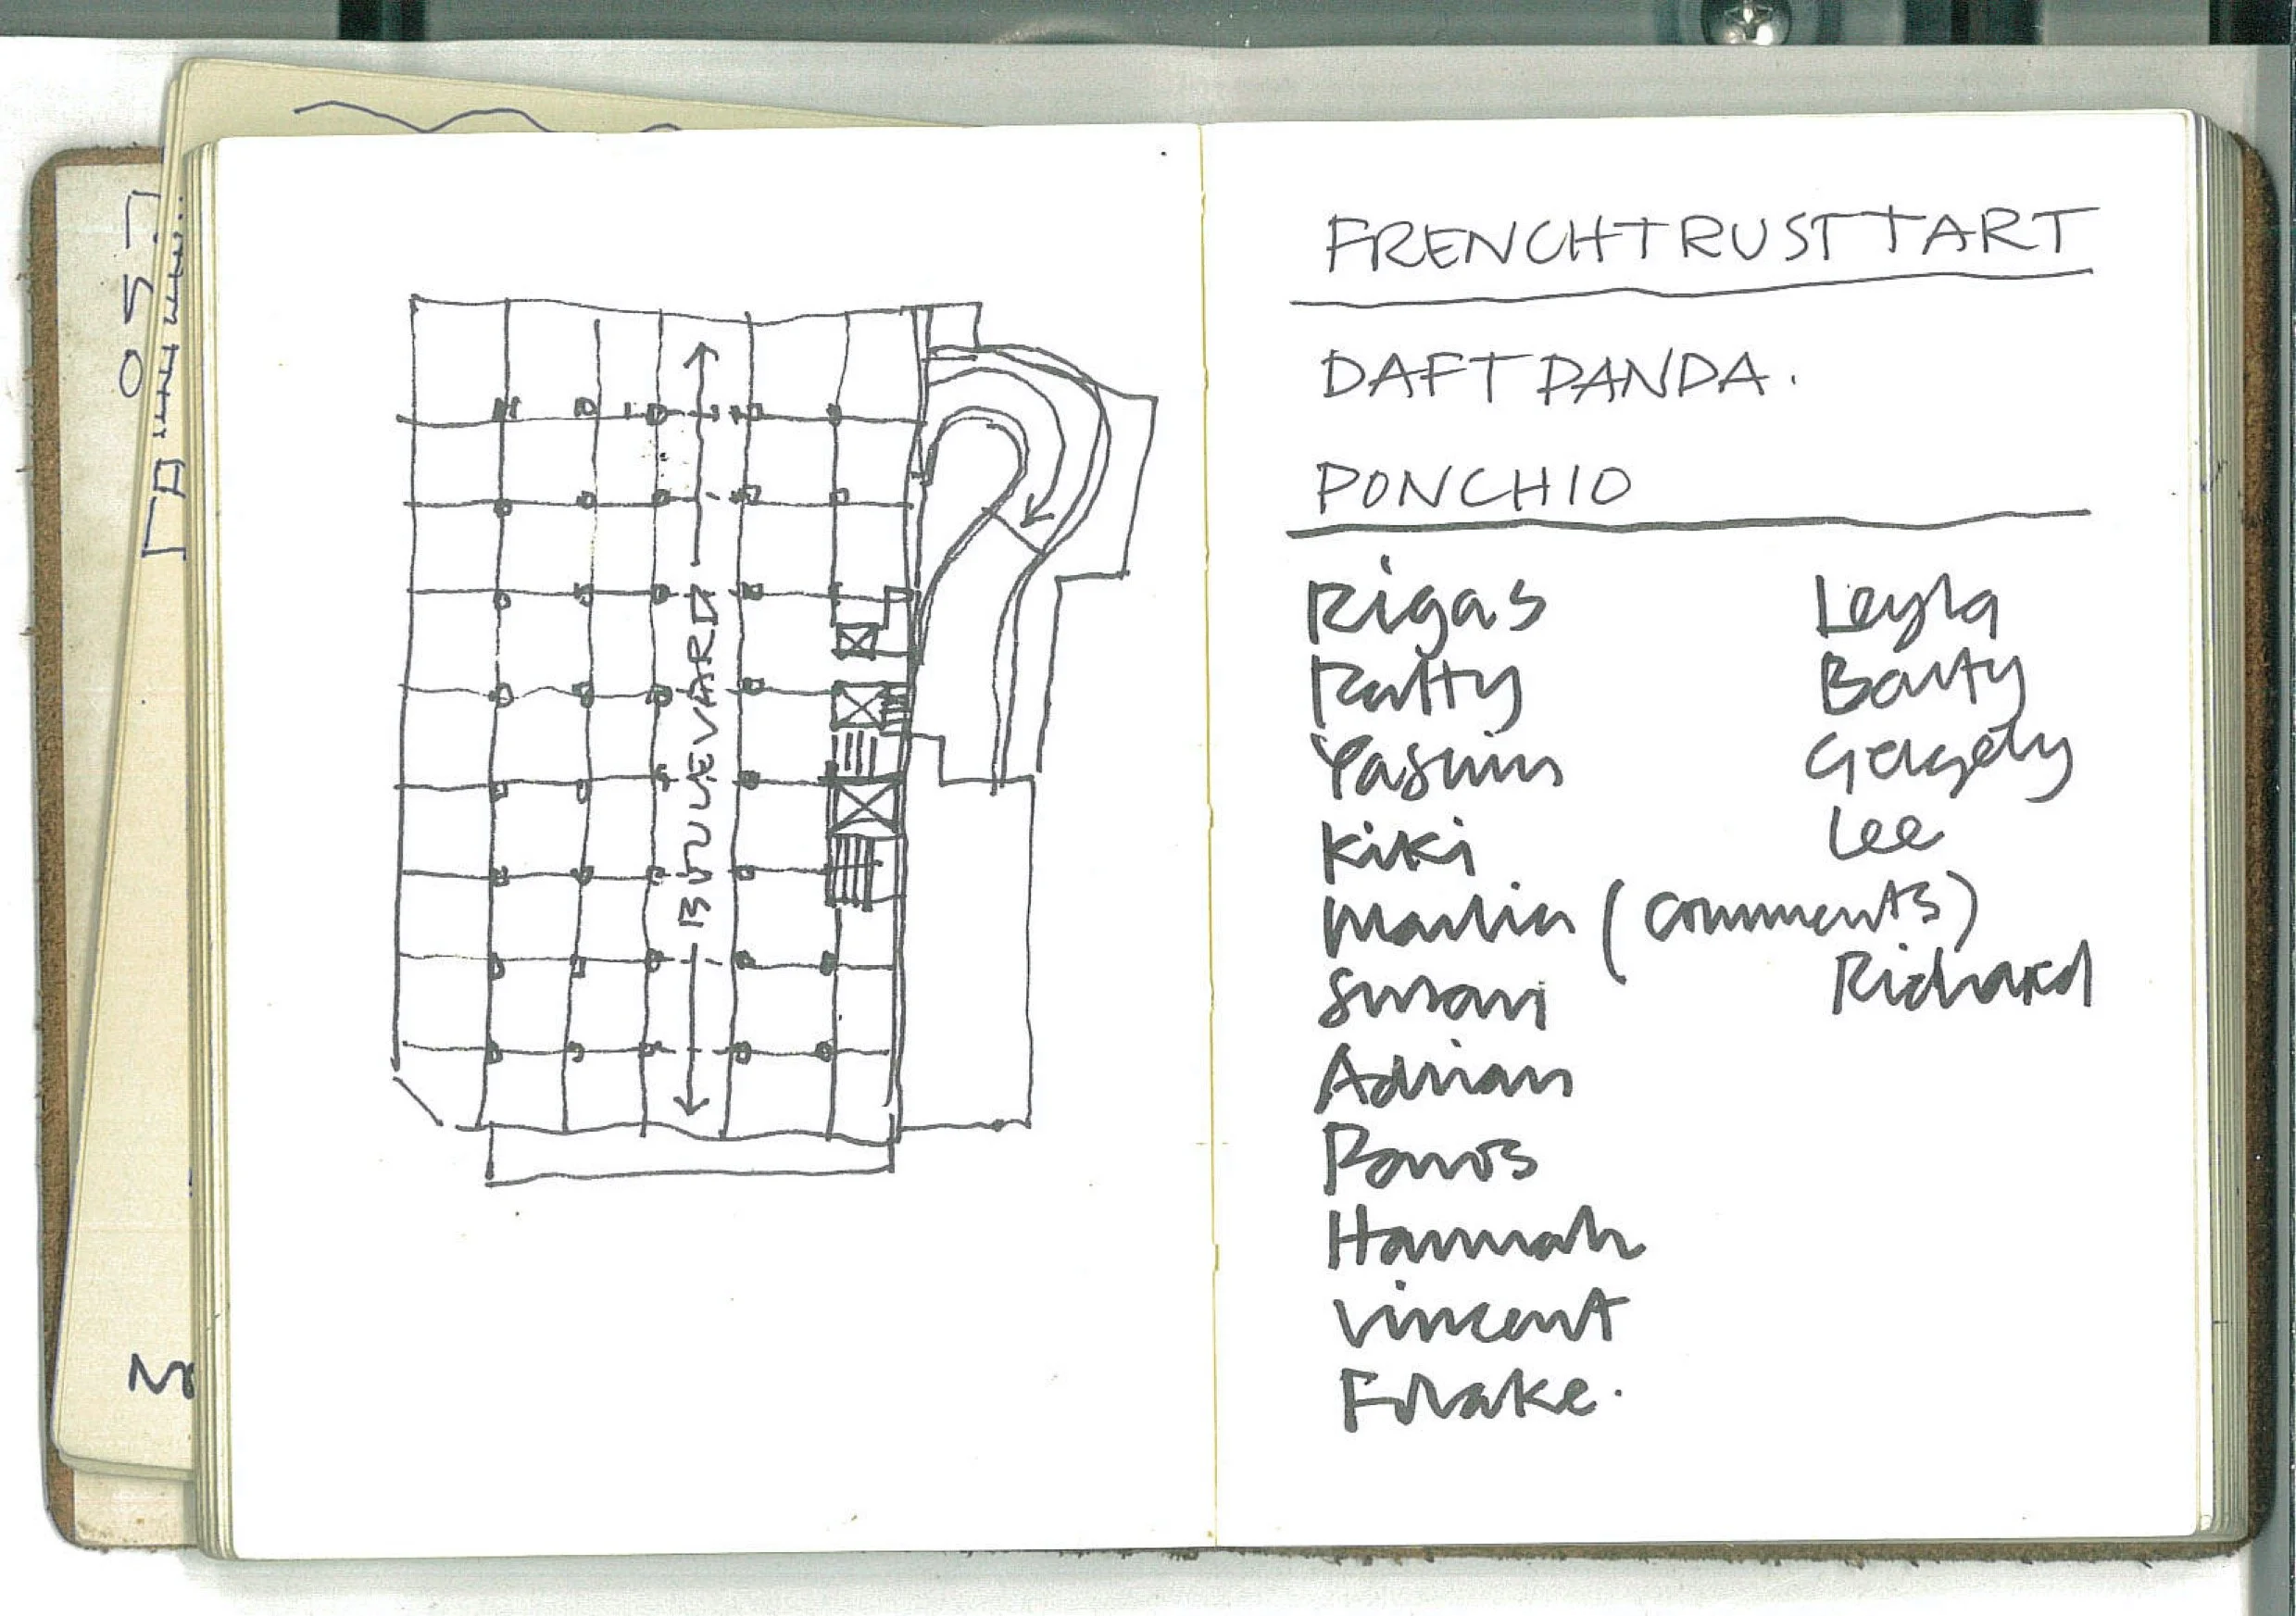 057
BOULEVARD
FRENCHTRUSTTART
DAFT PANDA.
PONCHIO
Rigas
Leyla
Ratty
Barty
Yasmin
Gergely
Kiki
Lee
Martin (comments)
Richard
Susan
Adrian
Panos
Hannah
Vincent